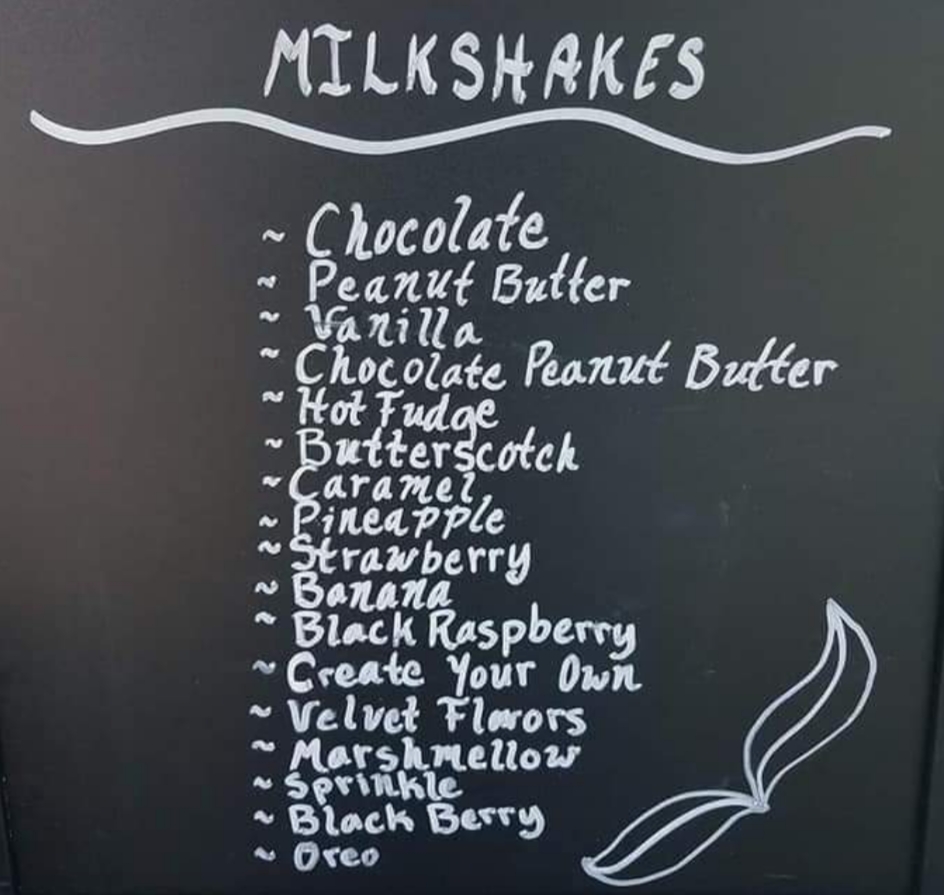 MILKSHAKES
~ Chocolate
~ Peanut Butter
~ Vanilla
~ Chocolate Peanut Butter
~ Hot Fudge
~ Butterscotch
~ Caramel
~ Pineapple
~ Strawberry
~ Banana
~ Black Raspberry
~ Create Your Own
~ Velvet Flavors
~ Marshmellow
~ Sprinkle
~ Black Berry
~ Oreo